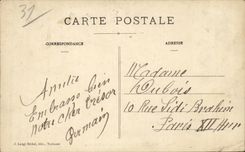 31
CARTE POSTALE
CORRESPONDANCE
ADRESSE
Amitié
Embrasse bien
notre cher trésor
Germain
Madame
Dubois
10 Rue Sidi Brahim
Paris XII Arr